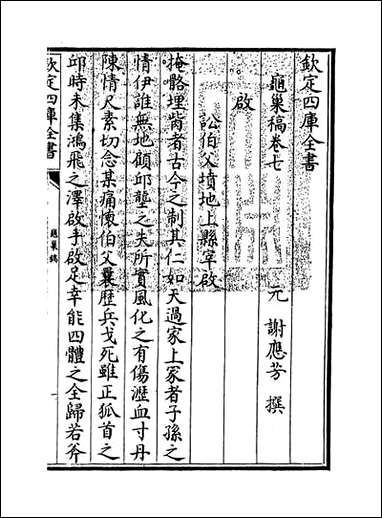 欽定四庫全書
龜巢稿卷七
元 謝應芳 撰
啟
訟伯父墳地上縣宰啟
掩骼埋胔者古今之制其仁如天過家上冢者子孫之
情伊誰無地顧邱壟之失所實風化之有傷瀝血寸丹
陳情尺素切念某痛懐伯父曩歴兵戈死雖正狐首之
邱時未集鴻飛之澤啟手啟足幸能四體之全歸若斧
欽定四庫全書
龜巢稿